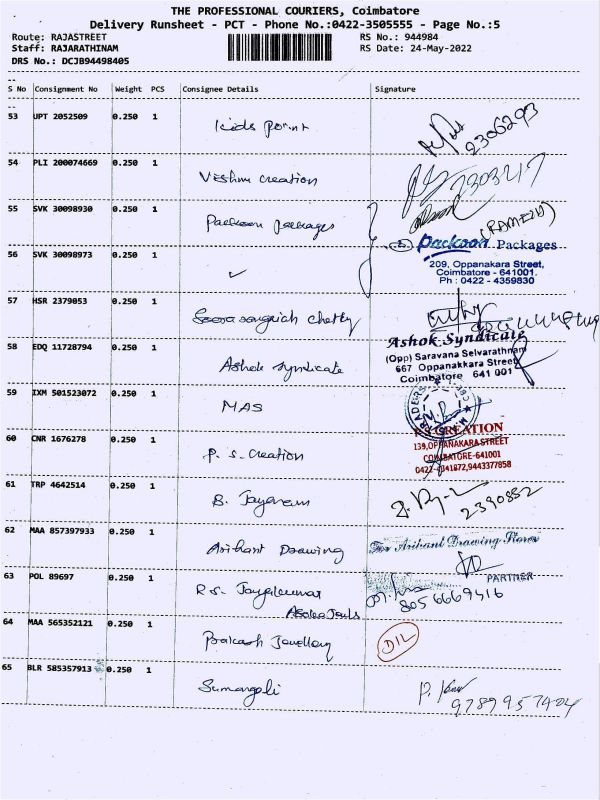 THE PROFESSIONAL COURIERS, Coimbatore
Delivery Runsheet - PCT - Phone No.:0422-3505555 - Page No.:5
Route: RAJASTREET RS No.: 944984
Staff: RAJARATHINAM RS Date: 24-May-2022
DRS No.: DCJB94498405
S No Consignment No Weight PCS Consignee Details Signature
53 UPT 2052509 0.250 1 Kids Point 2306293
54 PLI 200074669 0.250 1 Vishnu Creation 2303217
55 SVK 30098930 0.250 1 Packson Packages (RAMESH)
Packson Packages
56 SVK 30098973 0.250 1 ✓
209, Oppanakara Street,
Coimbatore - 641001.
Ph : 0422 - 4359830
57 HSR 2379053 0.250 1 chetty
Ashok Syndicate
58 EDQ 11728794 0.250 1 Ashok Syndicate
(Opp) Saravana Selvarathnam
667 Oppanakkara Street
Coimbatore 641 001
59 IXM 501523072 0.250 1 MAS
60 CNR 1676278 0.250 1 P. S. Creation
P.S CREATION
139,OPPANAKARA STREET
COIMBATORE-641001
0422-4341872,9443377858
61 TRP 4642514 0.250 1 B. Jayaram 2390852
62 MAA 857397933 0.250 1 Arihant Drawing
For Arihant Drawing Stores
PARTNER
63 POL 89697 0.250 1 R.S. Jayakumar 805 6669416
64 MAA 565352121 0.250 1 Prakash Jewellery DIL
65 BLR 585357913 0.250 1 Sumangali 9789957404